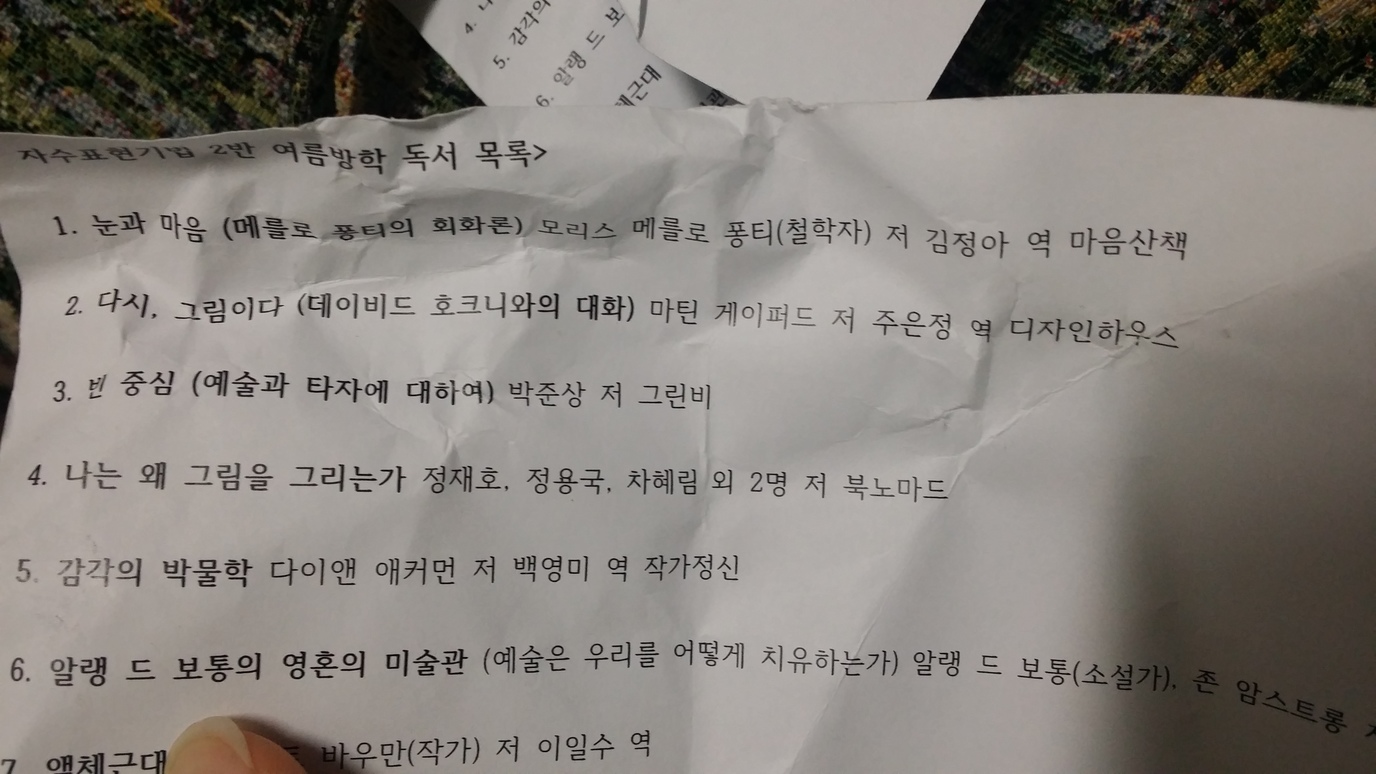 4.
5. 감각의
6. 알랭 드 보
체근대
자수표현기법 2반 여름방학 독서 목록>
1. 눈과 마음 (메를로 퐁티의 회화론) 모리스 메를로 퐁티(철학자) 저 김정아 역 마음산책
2. 다시, 그림이다 (데이비드 호크니와의 대화) 마틴 게이퍼드 저 주은정 역 디자인하우스
3. 빈 중심 (예술과 타자에 대하여) 박준상 저 그린비
4. 나는 왜 그림을 그리는가 정재호, 정용국, 차혜림 외 2명 저 북노마드
5. 감각의 박물학 다이앤 애커먼 저 백영미 역 작가정신
6. 알랭 드 보통의 영혼의 미술관 (예술은 우리를 어떻게 치유하는가) 알랭 드 보통(소설가), 존 암스트롱
7. 액체근대 바우만(작가) 저 이일수 역